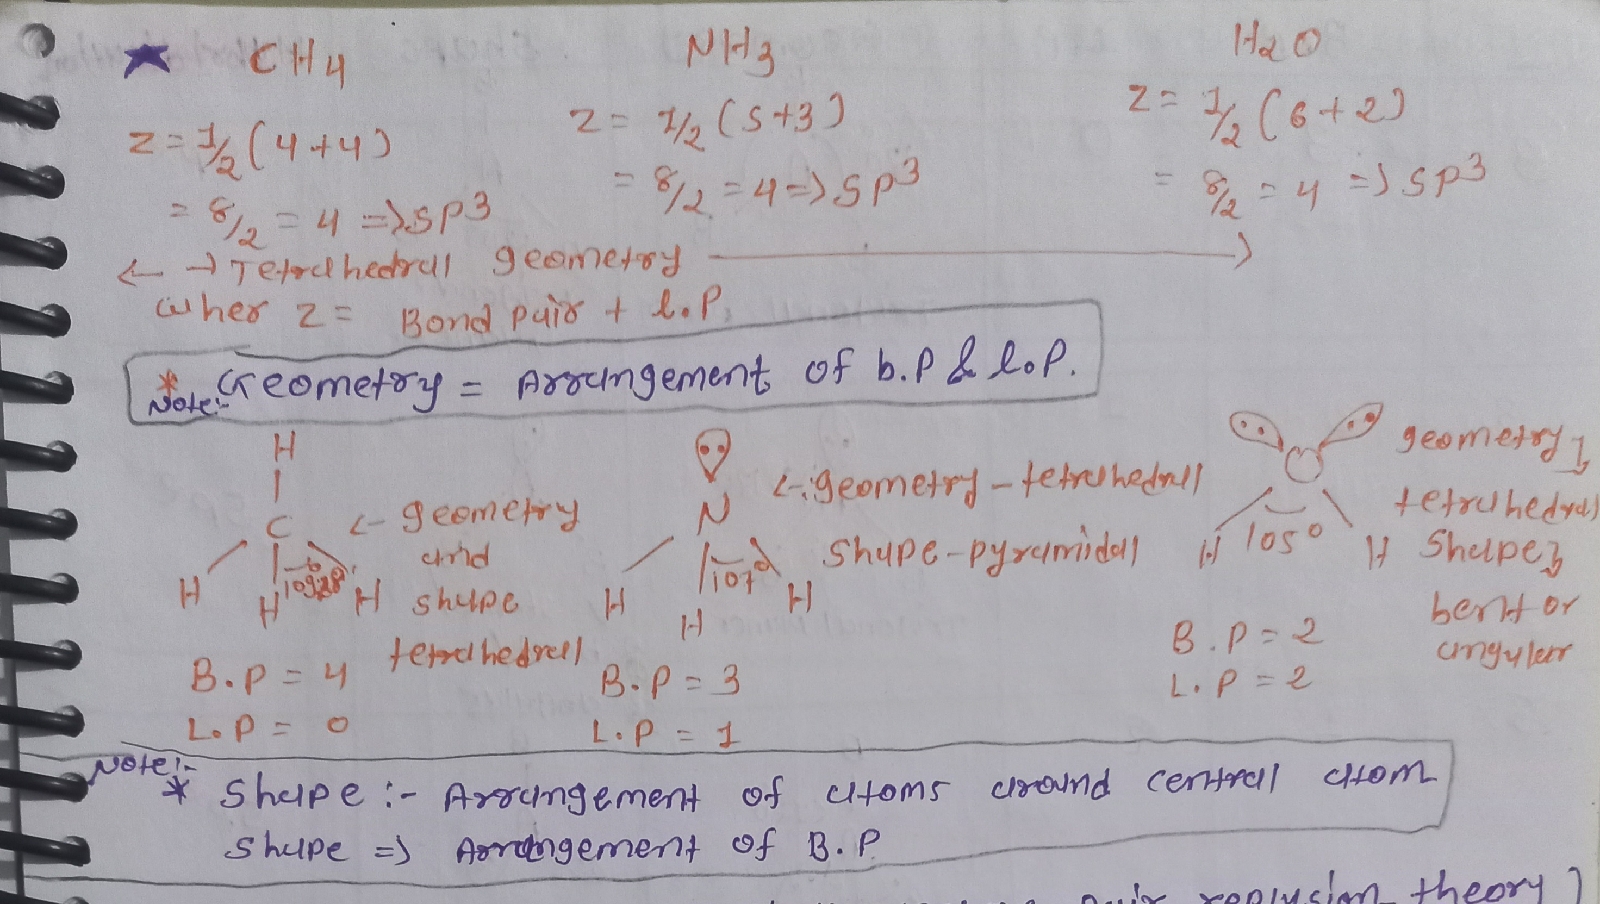 CH4 NH3 H2O
z = 1/2 (4+4) z = 1/2 (5+3) z = 1/2 (6+2)
= 8/2 = 4 => sp3 = 8/2 = 4 => sp3 = 8/2 = 4 => sp3
← → Tetrahedral geometry →
wher z = Bond pair + l.P.
* Note:- Geometry = Arrangement of b.P & l.P.
H
C
H H H
109°28'
← geometry
and
shape
tetrahedral
B.P = 4
L.P = 0
N
H H H
107°
← geometry - tetrahedral
Shape - pyramidal
B.P = 3
L.P = 1
H 105° H
geometry
tetrahedral
Shape
bent or
angular
B.P = 2
L.P = 2
Note:-
* Shape :- Arrangement of atoms around central atom
Shape => Arrangement of B.P
pair replusion theory)